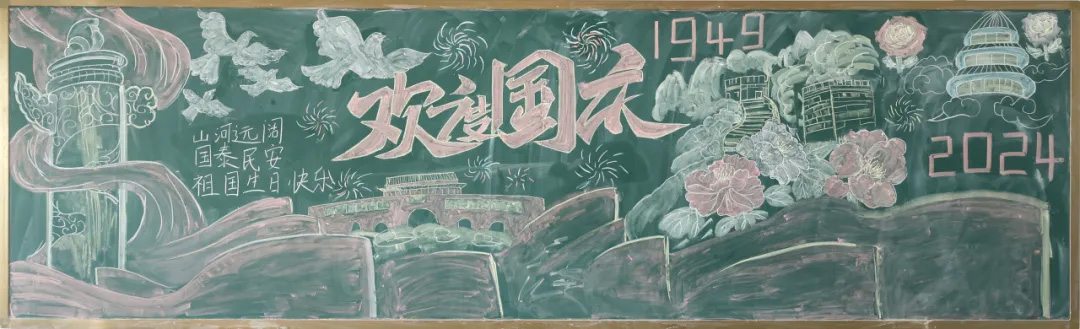 欢度国庆
1949
2024
山河远阔
国泰民安
祖国生日快乐